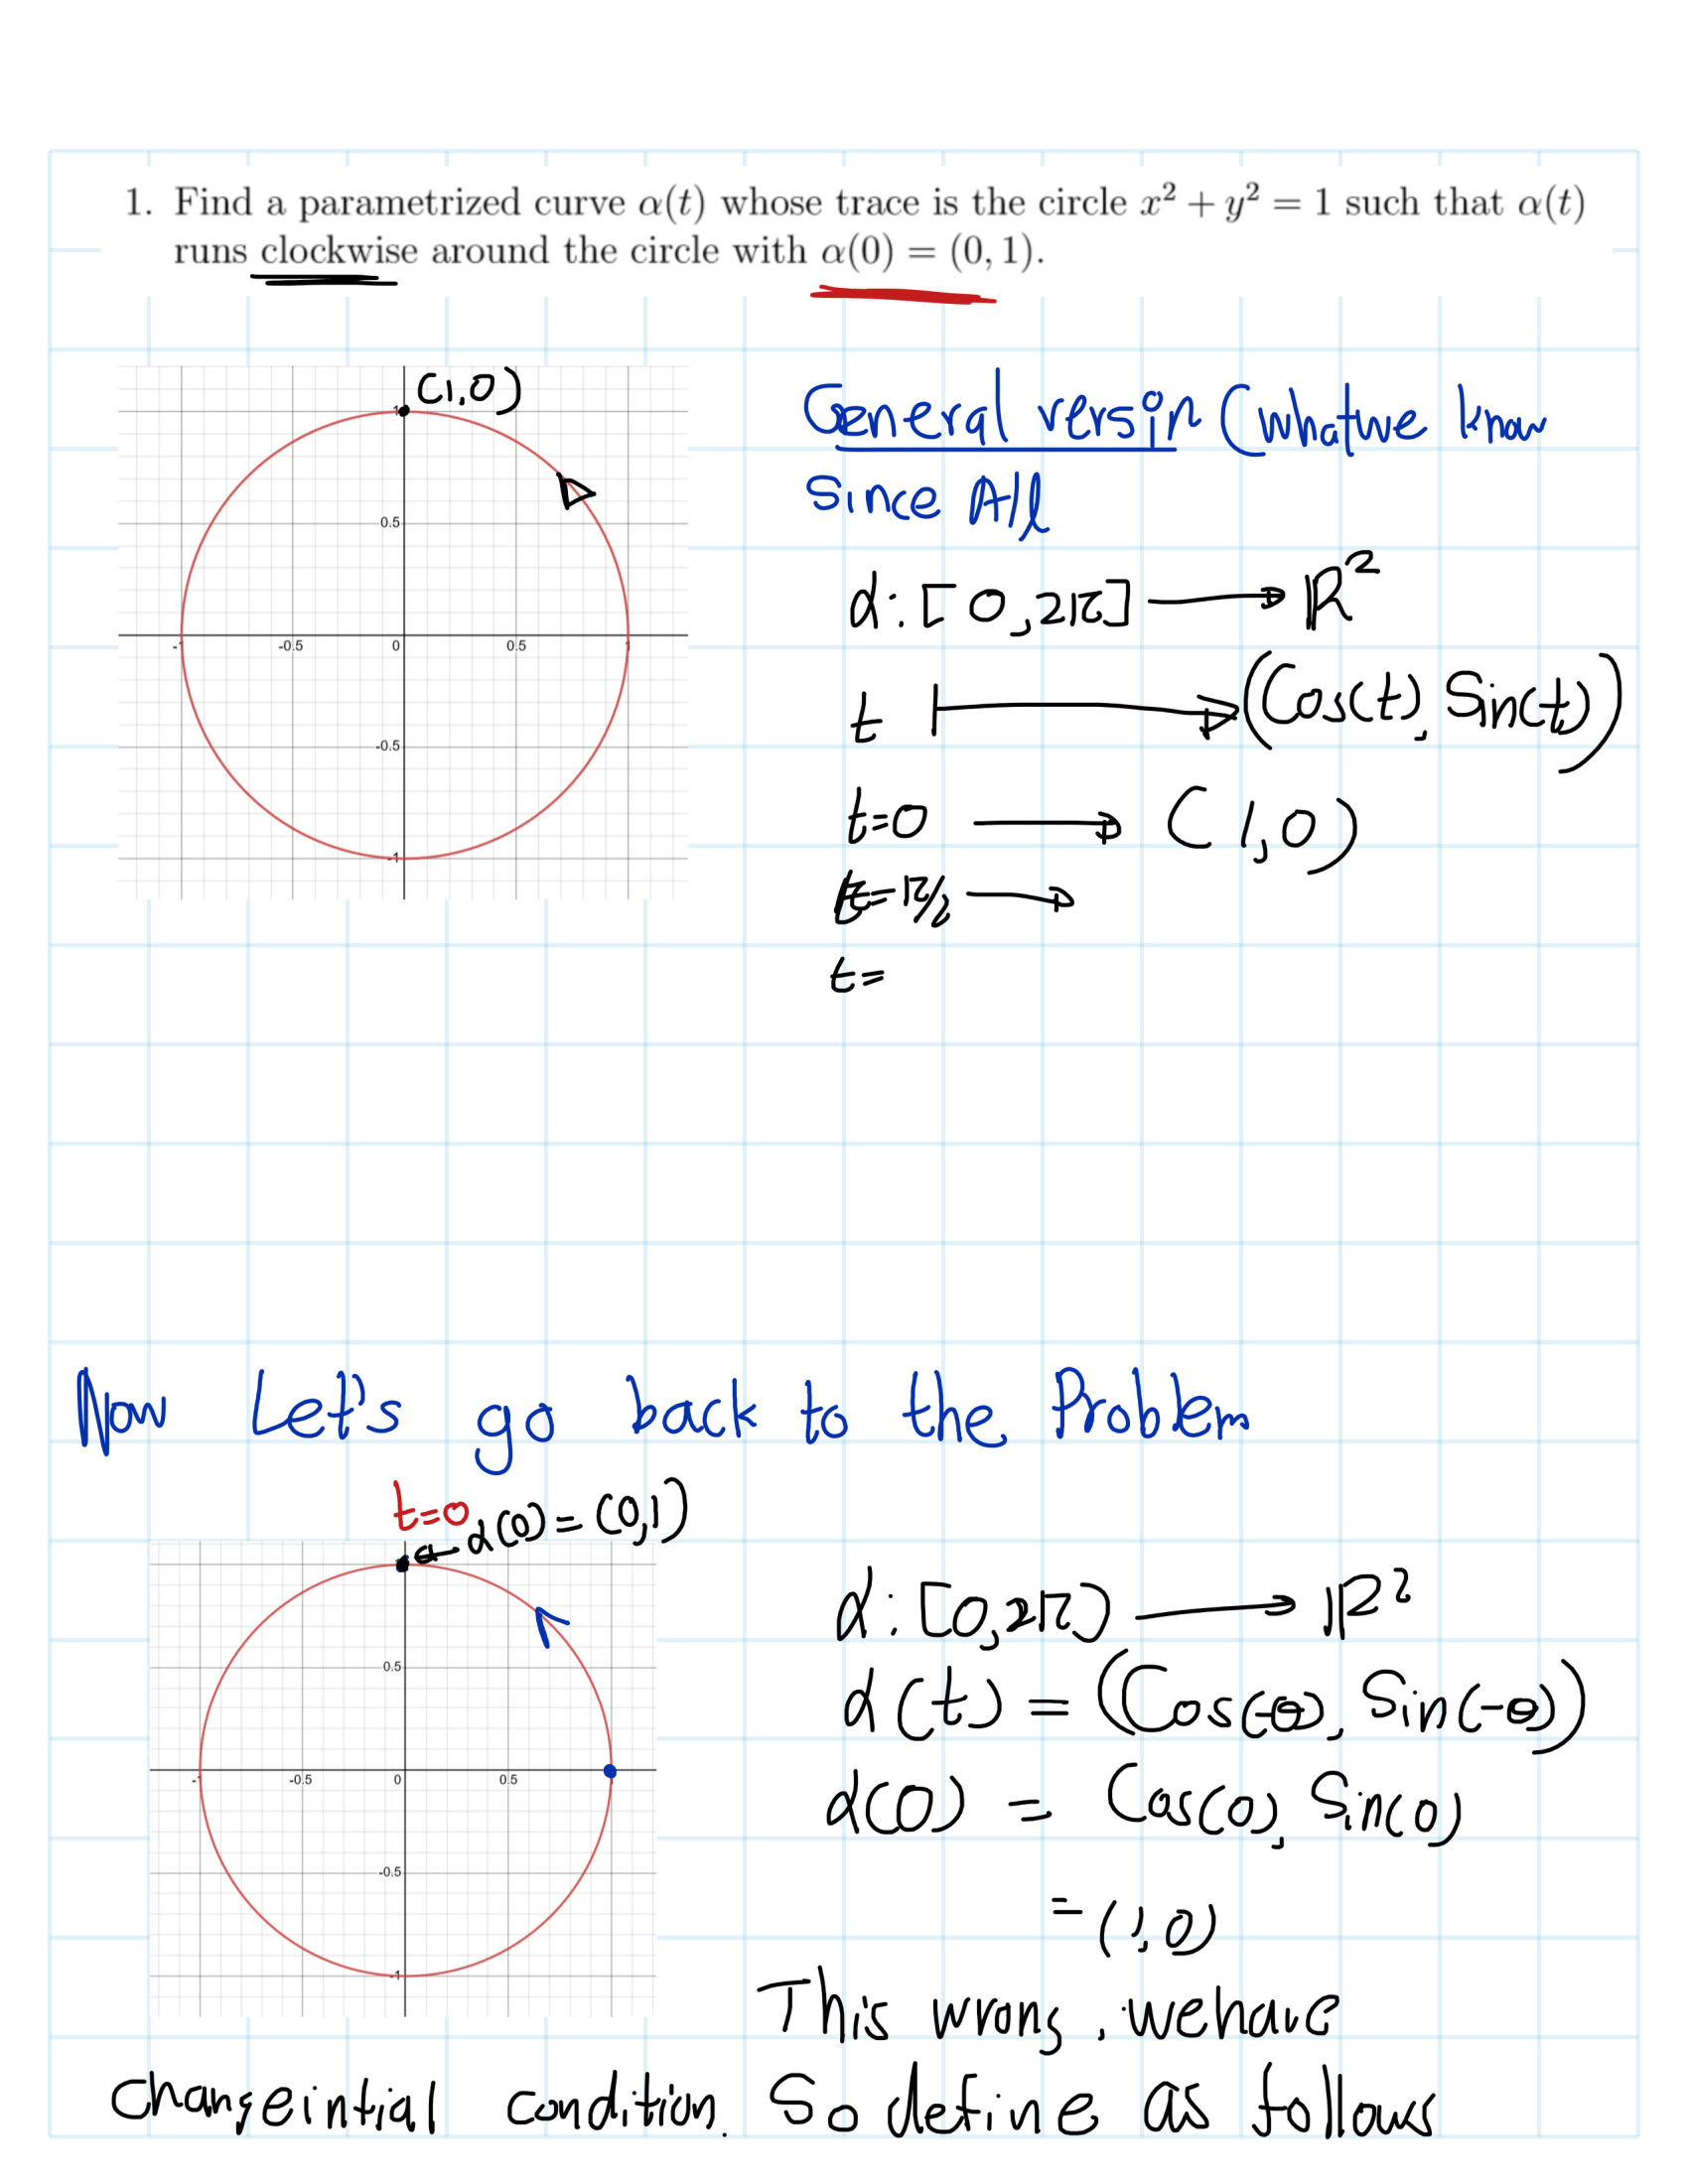 1. Find a parametrized curve α(t) whose trace is the circle x² + y² = 1 such that α(t)
runs clockwise around the circle with α(0) = (0, 1).
(1,0)
1
0.5
-1 -0.5 0 0.5 1
-0.5
-1
General versin (whatwe know
Since A/l
α: [0,2π] ⟶ ℝ²
t ⟼ (Cos(t), Sin(t))
t=0 ⟶ (1,0)
t=π/2 ⟶
t=
Now Let's go back to the Problem
t=0 α(0) = (0,1)
0.5
-1 -0.5 0 0.5
-0.5
-1
α: [0,2π) ⟶ ℝ²
α(t) = (Cos(-θ), Sin(-θ))
α(0) = Cos(0), Sin(0)
= (1,0)
This wrong, wehave
Changeintial condition. So define as follows